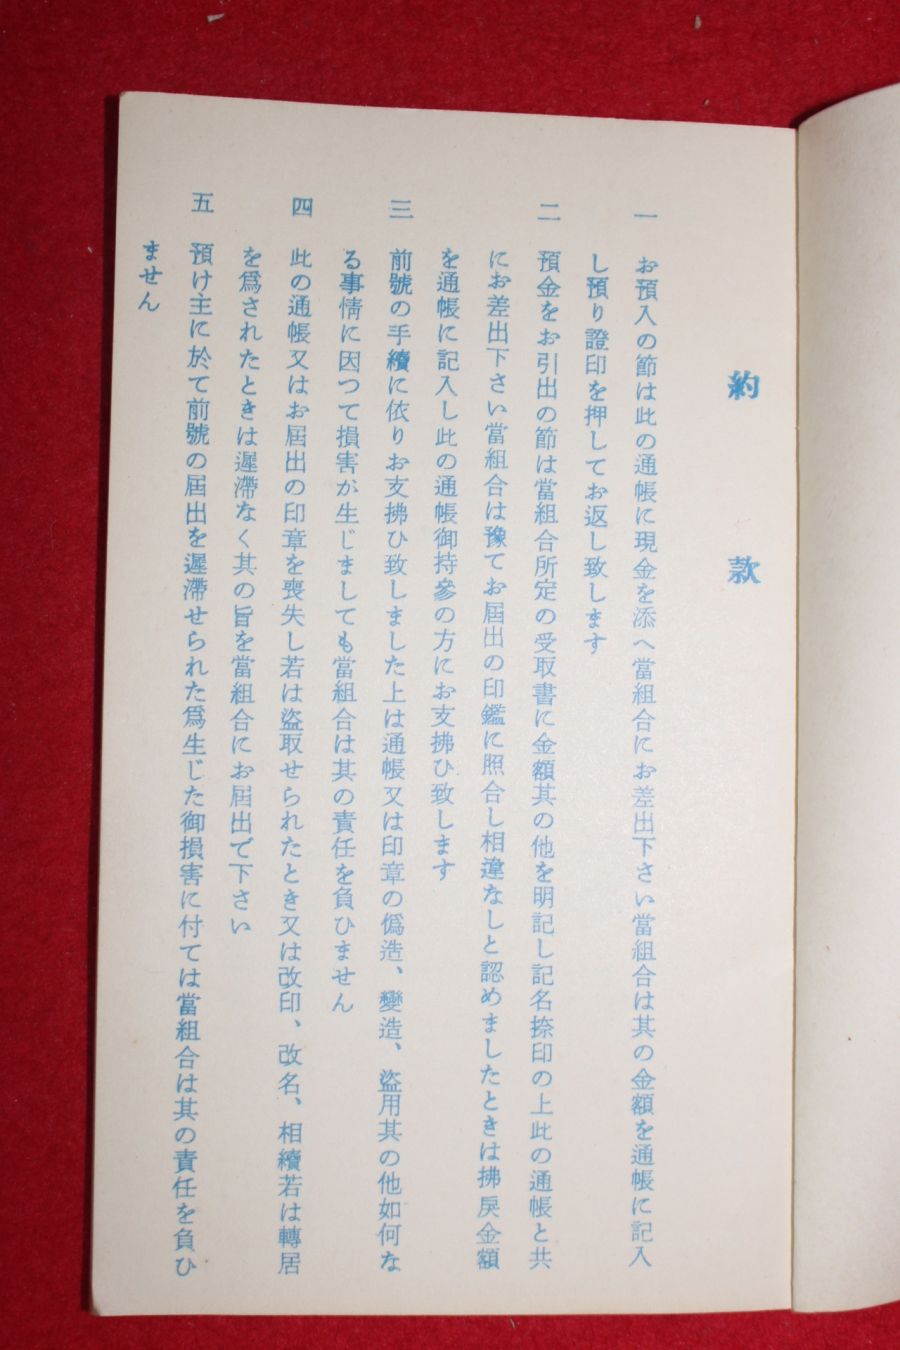 約款
一 お預入の節は此の通帳に現金を添へ當組合にお差出下さい當組合は其の金額を通帳に記入
し預り證印を押してお返し致します
二 預金をお引出の節は當組合所定の受取書に金額其の他を明記し記名捺印の上此の通帳と共
にお差出下さい當組合は豫てお屆出の印鑑に照合し相違なしと認めましたときは拂戾金額
を通帳に記入し此の通帳御持參の方にお支拂ひ致します
三 前號の手續に依りお支拂ひ致しました上は通帳又は印章の僞造、變造、盜用其の他如何な
る事情に因つて損害が生じましても當組合は其の責任を負ひません
四 此の通帳又はお屆出の印章を喪失し若は盜取せられたとき又は改印、改名、相續若は轉居
を爲されたときは遲滯なく其の旨を當組合にお屆出で下さい
五 預け主に於て前號の屆出を遲滯せられた爲生じた御損害に付ては當組合は其の責任を負ひ
ません